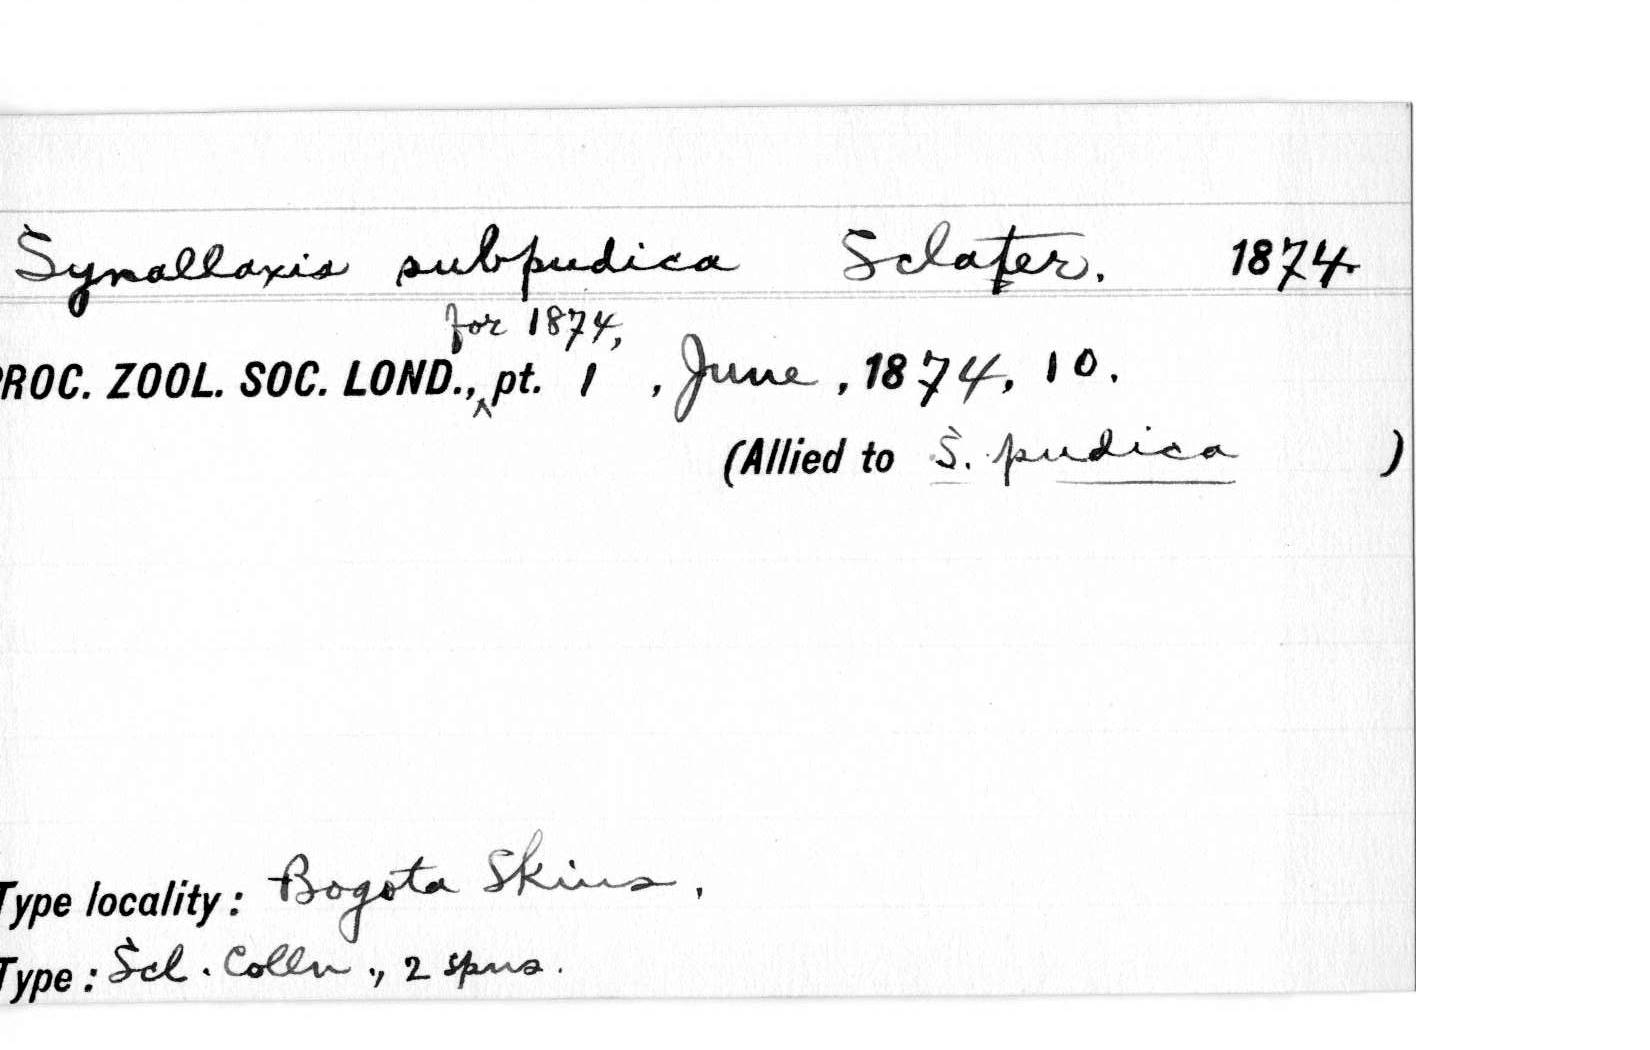 Synallaxis subpudica Sclater. 1874
for 1874,
ROC. ZOOL. SOC. LOND., ^ pt. 1 , June , 1874, 10.
(Allied to S. pudica )
Type locality : Bogota Skins .
Type : Scl. Colln ., 2 spns .